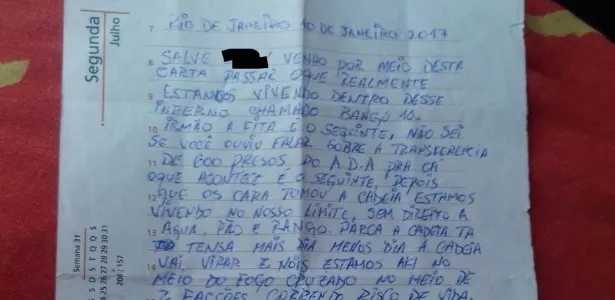 Segunda
Julho
7
RIO DE JANEIRO 10 DE JANEIRO 2017
8
SALVE VENHO POR MEIO DESTA
CARTA PASSAR OQUE REALMENTE
9
ESTAMOS VIVENDO DENTRO DESSE
INFERNO CHAMADO BANGÚ 10.
10
IRMÃO A FITA É O SEGUINTE, NÃO SEI
SE VOCÊ OUVIU FALAR SOBRE A TRANSFERENCIA
11
DE 600 PRESOS DO A.D.A PRA CÁ
OQUE ACONTECE É O SEGUINTE, DEPOIS
12
QUE OS CARA TOMOU A CADEIA ESTAMOS
VIVENDO NO NOSSO LIMITE, SEM DIREITO A
13
AGUA, PÃO E RANGO. PARCA A CADEIA TA
TENSA MAIS DIA MENOS DIA A CADEIA
14
VAI, VIRAR E NÓIS ESTAMOS AKI NO
MEIO DO FOGO CRUZADO NO MEIO DE
2 FACÇÕES CORRENDO RISCO DE VIDA.
Semana 31
S O S T Q Q S
24 25 26 27 28 29 30 31
208 | 157